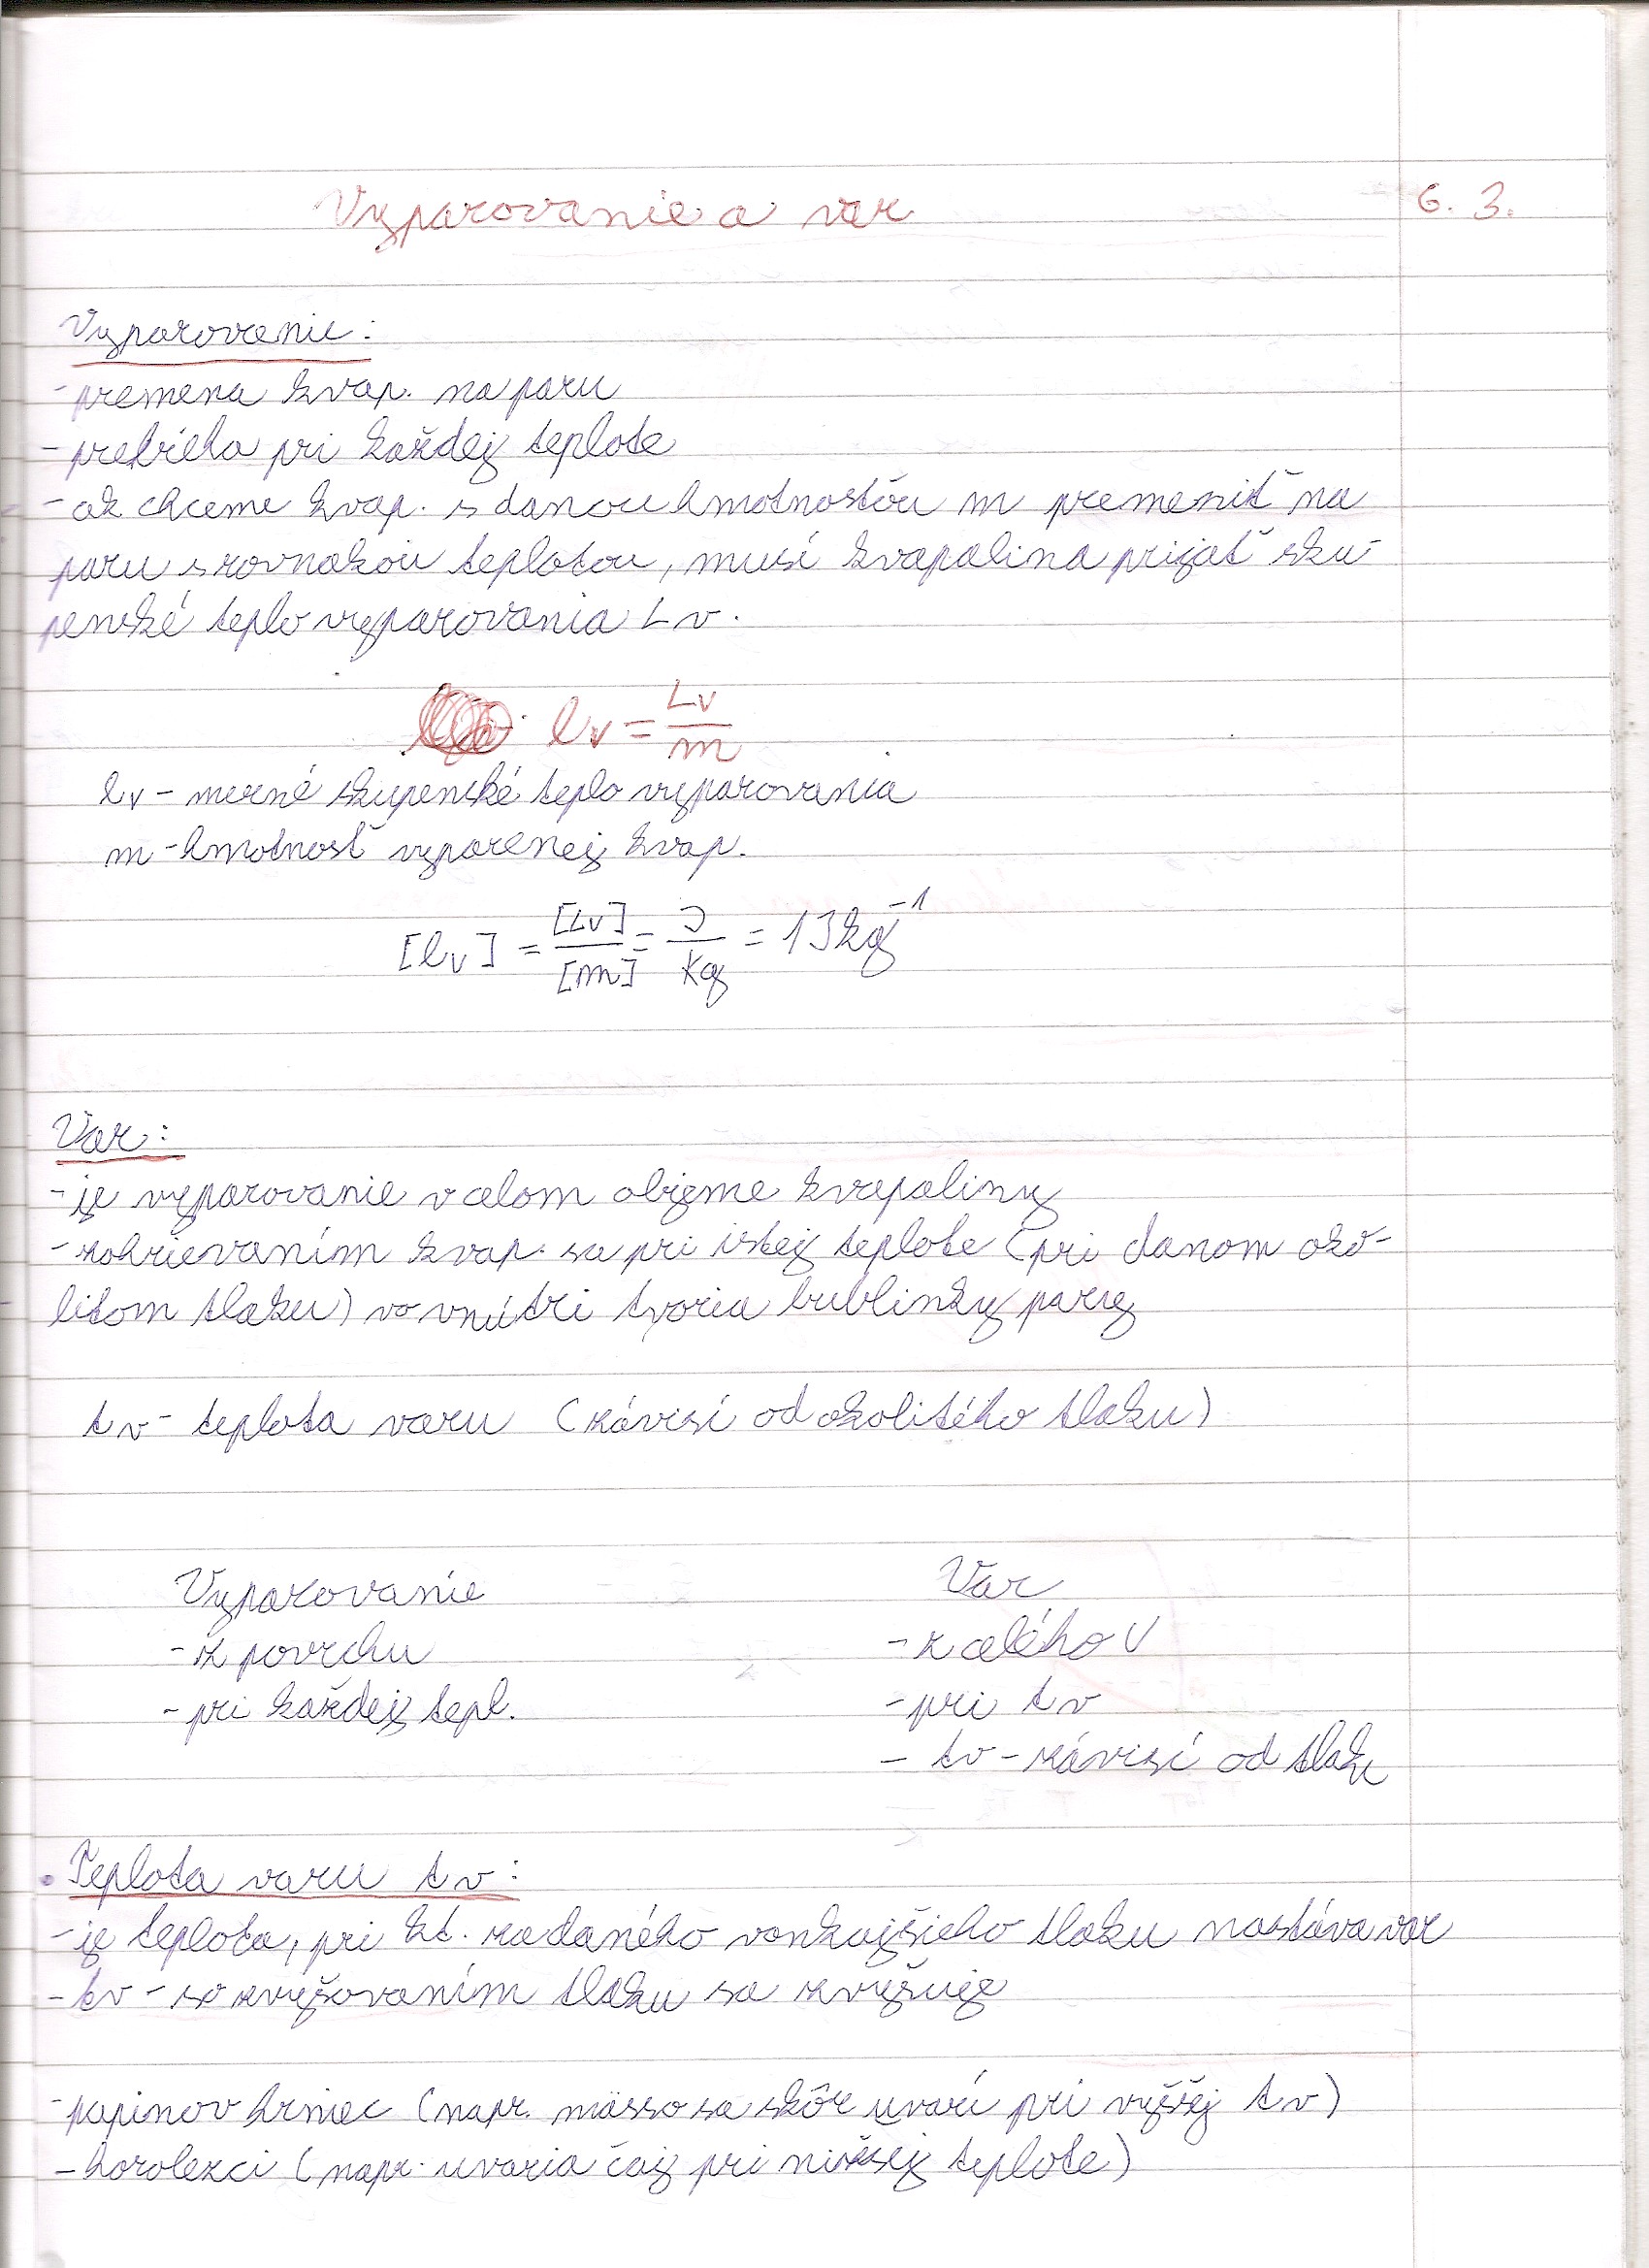 Vyparovanie a var 6. 3.
Vyparovanie:
- premena kvap. na paru
- prebieha pri každej teplote
- ak chceme kvap. s danou hmotnosťou m premeniť na
paru s rovnakou teplotou, musí kvapalina prijať sku-
penské teplo vyparovania Lv.
lv = Lv/m
lv - merné skupenské teplo vyparovania
m - hmotnosť vyparenej kvap.
[lv] = [Lv]/[m] = J/kg = 1 J kg⁻¹
Var:
- je vyparovanie v celom objeme kvapaliny
- zohrievaním kvap. sa pri istej teplote (pri danom oko-
litom tlaku) vo vnútri tvoria bublinky pary
tv - teplota varu (závisí od okolitého tlaku)
Vyparovanie Var
- z povrchu - z celého V
- pri každej tepl. - pri tv
- tv - závisí od tlaku
Teplota varu tv:
- je teplota, pri kt. za daného vonkajšieho tlaku nastáva var
- tv - so zvyšovaním tlaku sa zvyšuje
- papinov hrniec (napr. mässo sa skôr uvarí pri vyššej tv)
- horolezci (napr. uvaria čaj pri nižsej teplote)